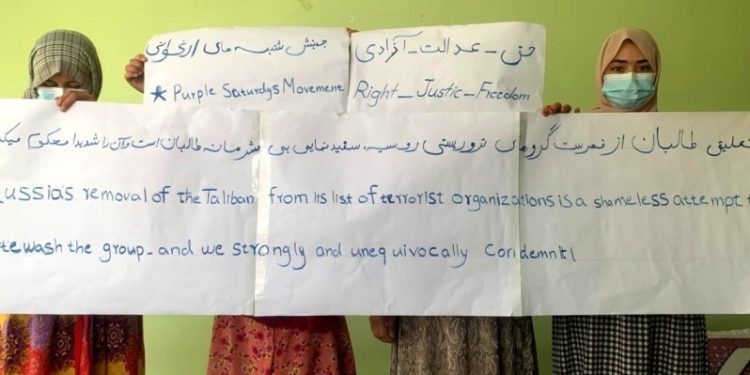 جنبش شنبه های ارغوانی
حق - عدالت - آزادی
* Purple Saturdys Movement
Right - Justic - Freedom
تعلیق طالبان از فهرست گروه‌های تروریستی روسیه، سفیدنمایی بی شرمانه طالبان است و آن را شدیدا محکوم میک
ussia's removal of the Taliban from its list of terrorist organizations is a shameless attempt t
tewash the group - and we strongly and unequivocally Condemn it